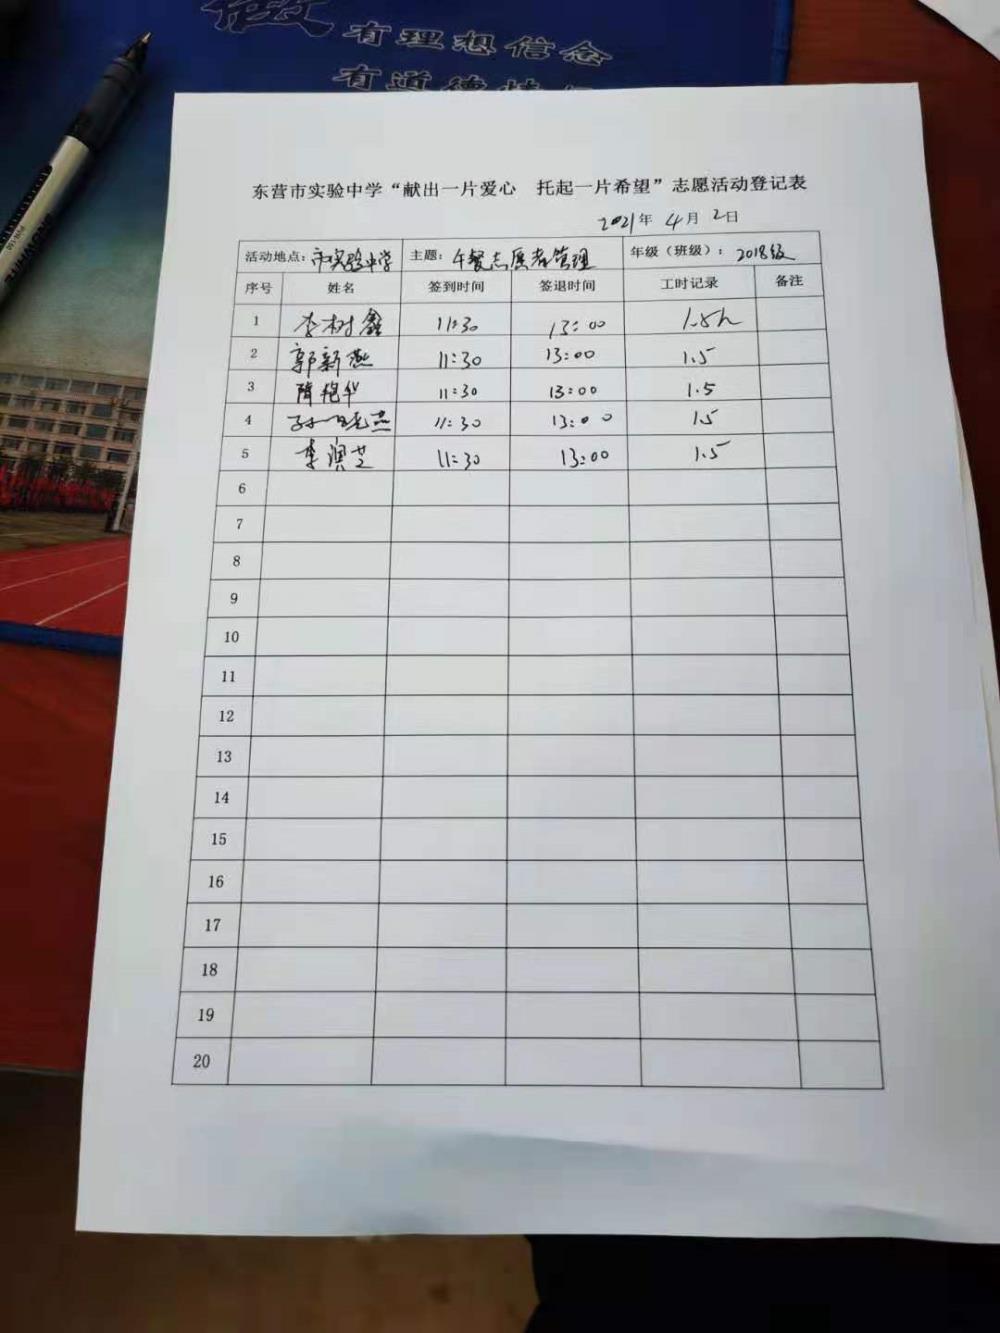 有理想信念
有道德情
东营市实验中学“献出一片爱心 托起一片希望”志愿活动登记表
2021年 4月 2日
活动地点：市实验中学 主题：午餐志愿者管理 年级（班级）：2018级
序号 姓名 签到时间 签退时间 工时记录 备注
1 李树鑫 11:30 13:00 1.5h
2 郭新燕 11:30 13:00 1.5
3 隋艳华 11:30 13:00 1.5
4 孙晓燕 11:30 13:00 1.5
5 李演芝 11:30 13:00 1.5
6
7
8
9
10
11
12
13
14
15
16
17
18
19
20